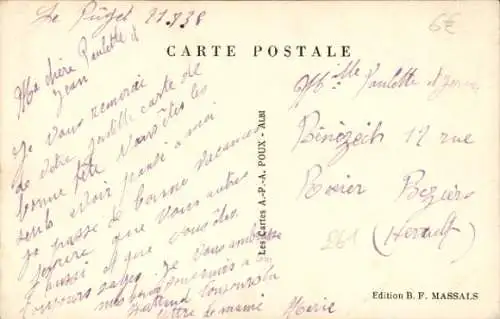 Le Puget 21.9.38
6€
CARTE POSTALE
Ma chère Paulette et
Jean
Je vous remercie
de votre gentille carte de
bonne fête vous êtes les
seuls avoir pensé à moi
Je passe de bonne vacances
j'espère que vous autres
aussi et que vous êtes
toujours sages. Je vous embrasse
lettre de mami Marie
Les Cartes A.-P.-A. POUX - ALBI
Mlle Paulette et Jean
Bénézech 12 rue
Rosier Beziers
(Herault)
261
Edition B. F. MASSALS